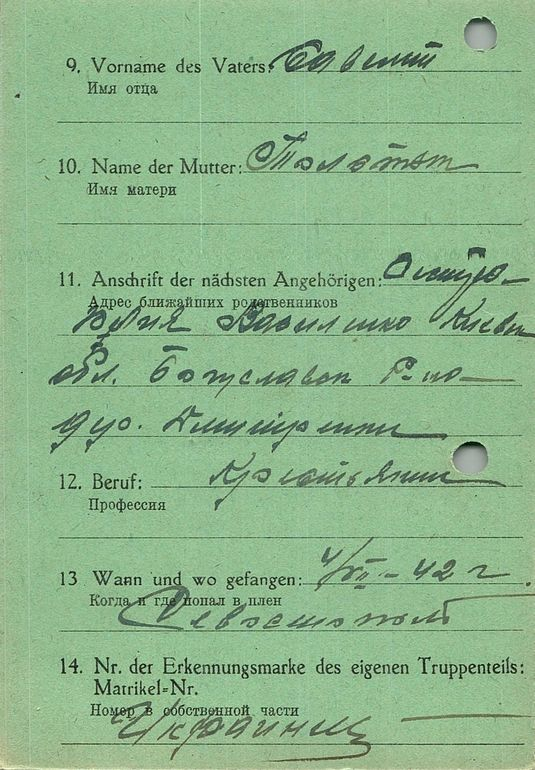 9. Vorname des Vaters: Савелий
Имя отца
10. Name der Mutter:
Имя матери
11. Anschrift der nächsten Angehörigen:
Адрес ближайших родственников
Василенко Киевск
обл. Богуславск Р-но
дер. Дмитренки
12. Beruf: Крестьянин
Профессия
13 Wann und wo gefangen: 4/VII-42 г.
Когда и где попал в плен
Севастополь
14. Nr. der Erkennungsmarke des eigenen Truppenteils:
Matrikel=Nr.
Номер в собственной части
Украинец